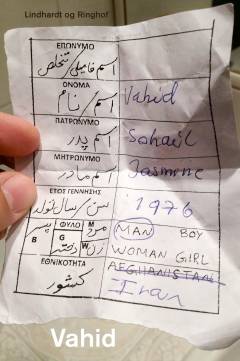 Lindhardt og Ringhof
ΕΠΩΝΥΜΟ
اسم فامیلی/تخلص
ΟΝΟΜΑ
اسم/نام Vahid
ΠΑΤΡΩΝΥΜΟ
اسم پدر Sohail
ΜΗΤΡΩΝΥΜΟ
اسم مادر Jasmine
ΕΤΟΣ ΓΕΝΝΗΣΗΣ
سن/سال تولد 1976
ΦΥΛΟ M MAN BOY
پسر مرد
B G W WOMAN GIRL
دختر زن
ΕΘΝΙΚΟΤΗΤΑ AFGHANISTAN
کشور Iran
Vahid